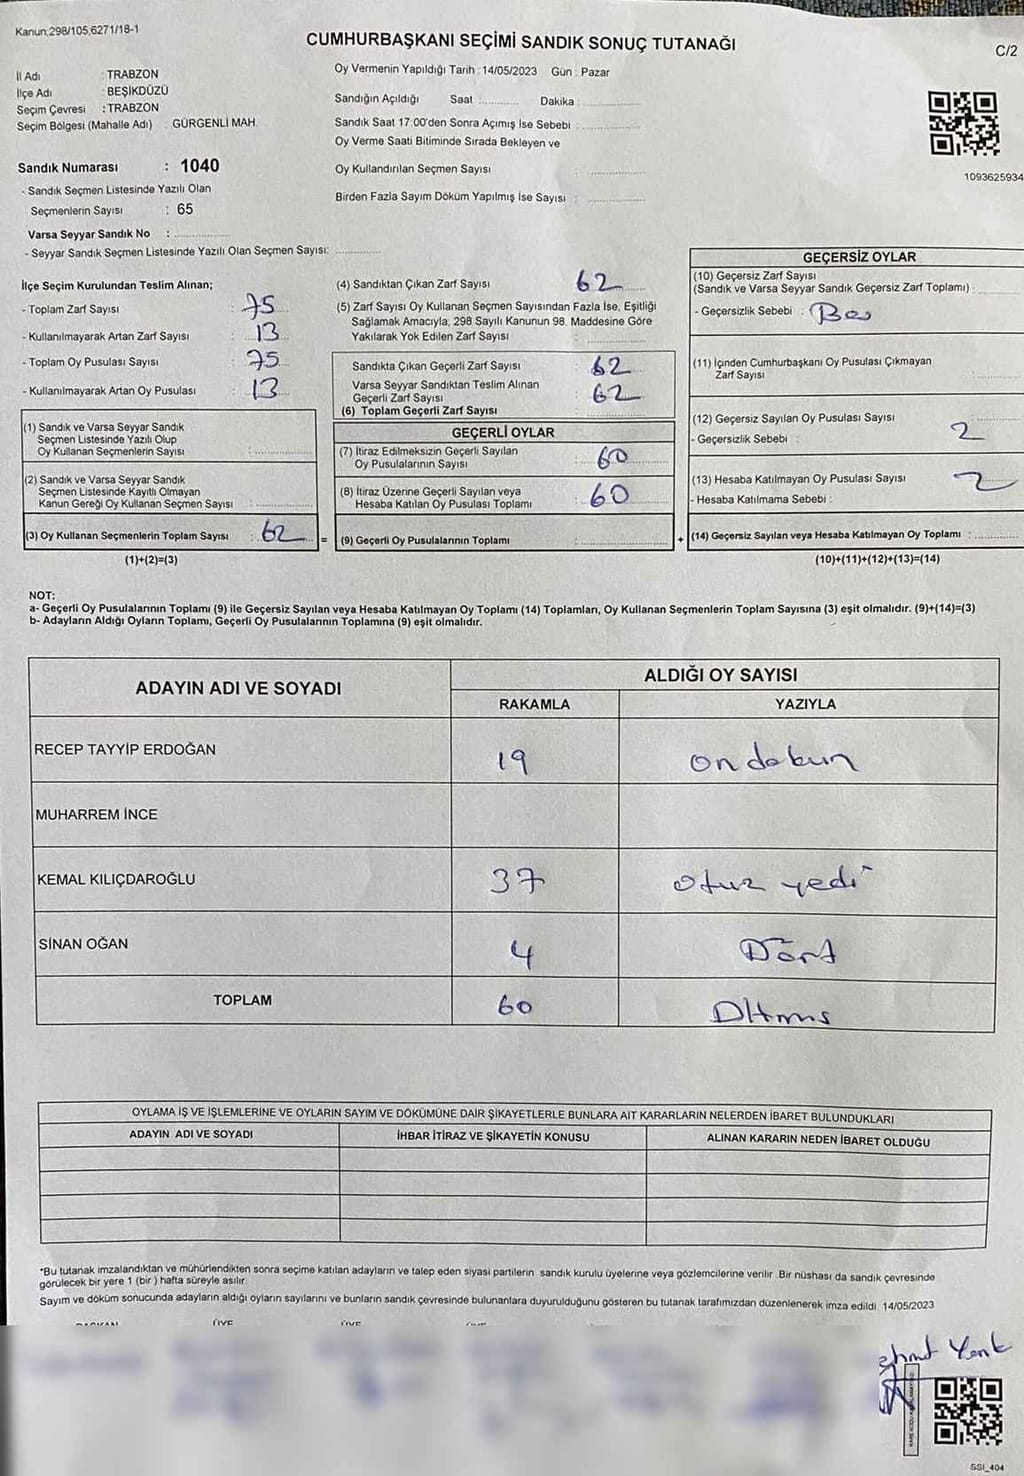 Kanun;298/105,6271/18-1
CUMHURBAŞKANI SEÇİMİ SANDIK SONUÇ TUTANAĞI
C/2
İl Adı : TRABZON
İlçe Adı : BEŞİKDÜZÜ
Seçim Çevresi : TRABZON
Seçim Bölgesi (Mahalle Adı) : GÜRGENLİ MAH.
Oy Vermenin Yapıldığı Tarih :14/05/2023 Gün : Pazar
Sandığın Açıldığı Saat :............ Dakika :..............
Sandık Saat 17:00'den Sonra Açımış İse Sebebi :..............
Oy Verme Saati Bitiminde Sırada Bekleyen ve
Oy Kullandırılan Seçmen Sayısı : ..............
Birden Fazla Sayım Döküm Yapılmış İse Sayısı : ..............
1093625934
Sandık Numarası : 1040
- Sandık Seçmen Listesinde Yazılı Olan
Seçmenlerin Sayısı : 65
Varsa Seyyar Sandık No : ..............
- Seyyar Sandık Seçmen Listesinde Yazılı Olan Seçmen Sayısı: ...........
İlçe Seçim Kurulundan Teslim Alınan;
- Toplam Zarf Sayısı : 75
- Kullanılmayarak Artan Zarf Sayısı : 13
- Toplam Oy Pusulası Sayısı : 75
- Kullanılmayarak Artan Oy Pusulası : 13
(1) Sandık ve Varsa Seyyar Sandık
Seçmen Listesinde Yazılı Olup
Oy Kullanan Seçmenlerin Sayısı : ..............
(2) Sandık ve Varsa Seyyar Sandık
Seçmen Listesinde Kayıtlı Olmayan
Kanun Gereği Oy Kullanan Seçmen Sayısı : ..............
(3) Oy Kullanan Seçmenlerin Toplam Sayısı : 62 =
(1)+(2)=(3)
(4) Sandıktan Çıkan Zarf Sayısı : 62
(5) Zarf Sayısı Oy Kullanan Seçmen Sayısından Fazla İse, Eşitliği
Sağlamak Amacıyla; 298 Sayılı Kanunun 98. Maddesine Göre
Yakılarak Yok Edilen Zarf Sayısı : ..............
Sandıkta Çıkan Geçerli Zarf Sayısı : 62
Varsa Seyyar Sandıktan Teslim Alınan
Geçerli Zarf Sayısı : 62
(6) Toplam Geçerli Zarf Sayısı : ..............
GEÇERLİ OYLAR
(7) İtiraz Edilmeksizin Geçerli Sayılan
Oy Pusulalarının Sayısı : 60
(8) İtiraz Üzerine Geçerli Sayılan veya
Hesaba Katılan Oy Pusulası Toplamı : 60
(9) Geçerli Oy Pusulalarının Toplamı : .............. +
GEÇERSİZ OYLAR
(10) Geçersiz Zarf Sayısı
(Sandık ve Varsa Seyyar Sandık Geçersiz Zarf Toplamı) :
- Geçersizlik Sebebi :
(11) İçinden Cumhurbaşkanı Oy Pusulası Çıkmayan
Zarf Sayısı : ..............
(12) Geçersiz Sayılan Oy Pusulası Sayısı : ..............
- Geçersizlik Sebebi : 2
(13) Hesaba Katılmayan Oy Pusulası Sayısı : 2
- Hesaba Katılmama Sebebi :
(14) Geçersiz Sayılan veya Hesaba Katılmayan Oy Toplamı : ..............
(10)+(11)+(12)+(13)=(14)
NOT:
a- Geçerli Oy Pusulalarının Toplamı (9) ile Geçersiz Sayılan veya Hesaba Katılmayan Oy Toplamı (14) Toplamları, Oy Kullanan Seçmenlerin Toplam Sayısına (3) eşit olmalıdır. (9)+(14)=(3)
b- Adayların Aldığı Oyların Toplamı, Geçerli Oy Pusulalarının Toplamına (9) eşit olmalıdır.
ADAYIN ADI VE SOYADI
ALDIĞI OY SAYISI
RAKAMLA YAZIYLA
RECEP TAYYİP ERDOĞAN 19 on dokuz
MUHARREM İNCE
KEMAL KILIÇDAROĞLU 37 otuz yedi
SİNAN OĞAN 4 Dört
TOPLAM 60
OYLAMA İŞ VE İŞLEMLERİNE VE OYLARIN SAYIM VE DÖKÜMÜNE DAİR ŞİKAYETLERLE BUNLARA AİT KARARLARIN NELERDEN İBARET BULUNDUKLARI
ADAYIN ADI VE SOYADI İHBAR İTİRAZ VE ŞİKAYETİN KONUSU ALINAN KARARIN NEDEN İBARET OLDUĞU
*Bu tutanak imzalandıktan ve mühürlendikten sonra seçime katılan adayların ve talep eden siyasi partilerin sandık kurulu üyelerine veya gözlemcilerine verilir. Bir nüshası da sandık çevresinde
görülecek bir yere 1 (bir) hafta süreyle asılır.
Sayım ve döküm sonucunda adayların aldığı oyların sayılarını ve bunların sandık çevresinde bulunanlara duyurulduğunu gösteren bu tutanak tarafımızdan düzenlenerek imza edildi. 14/05/2023
BAŞKAN ÜYE ÜYE ÜYE
SSI_404